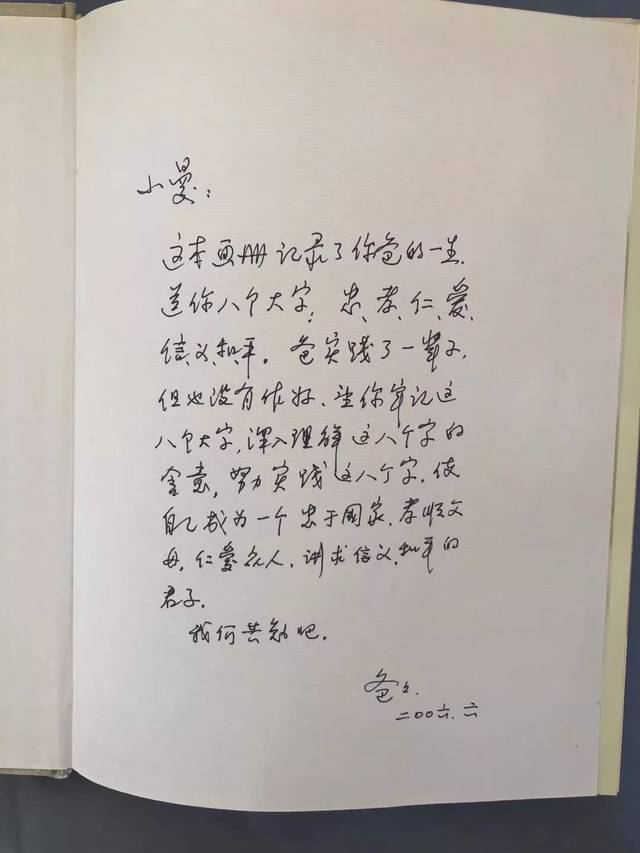 小曼：
这本画册记录了你爸的一生.
送你八个大字：忠、孝、仁、爱、
信、义、和、平。爸实践了一辈子,
但也没有作好.望你牢记这
八个大字,深入理解这八个字的
含意,努力实践这八个字.使
自己成为一个忠于国家.孝顺父
母,仁爱众人.讲求信义、和平的
君子.
我们共勉吧.
爸爸.
二00六.六